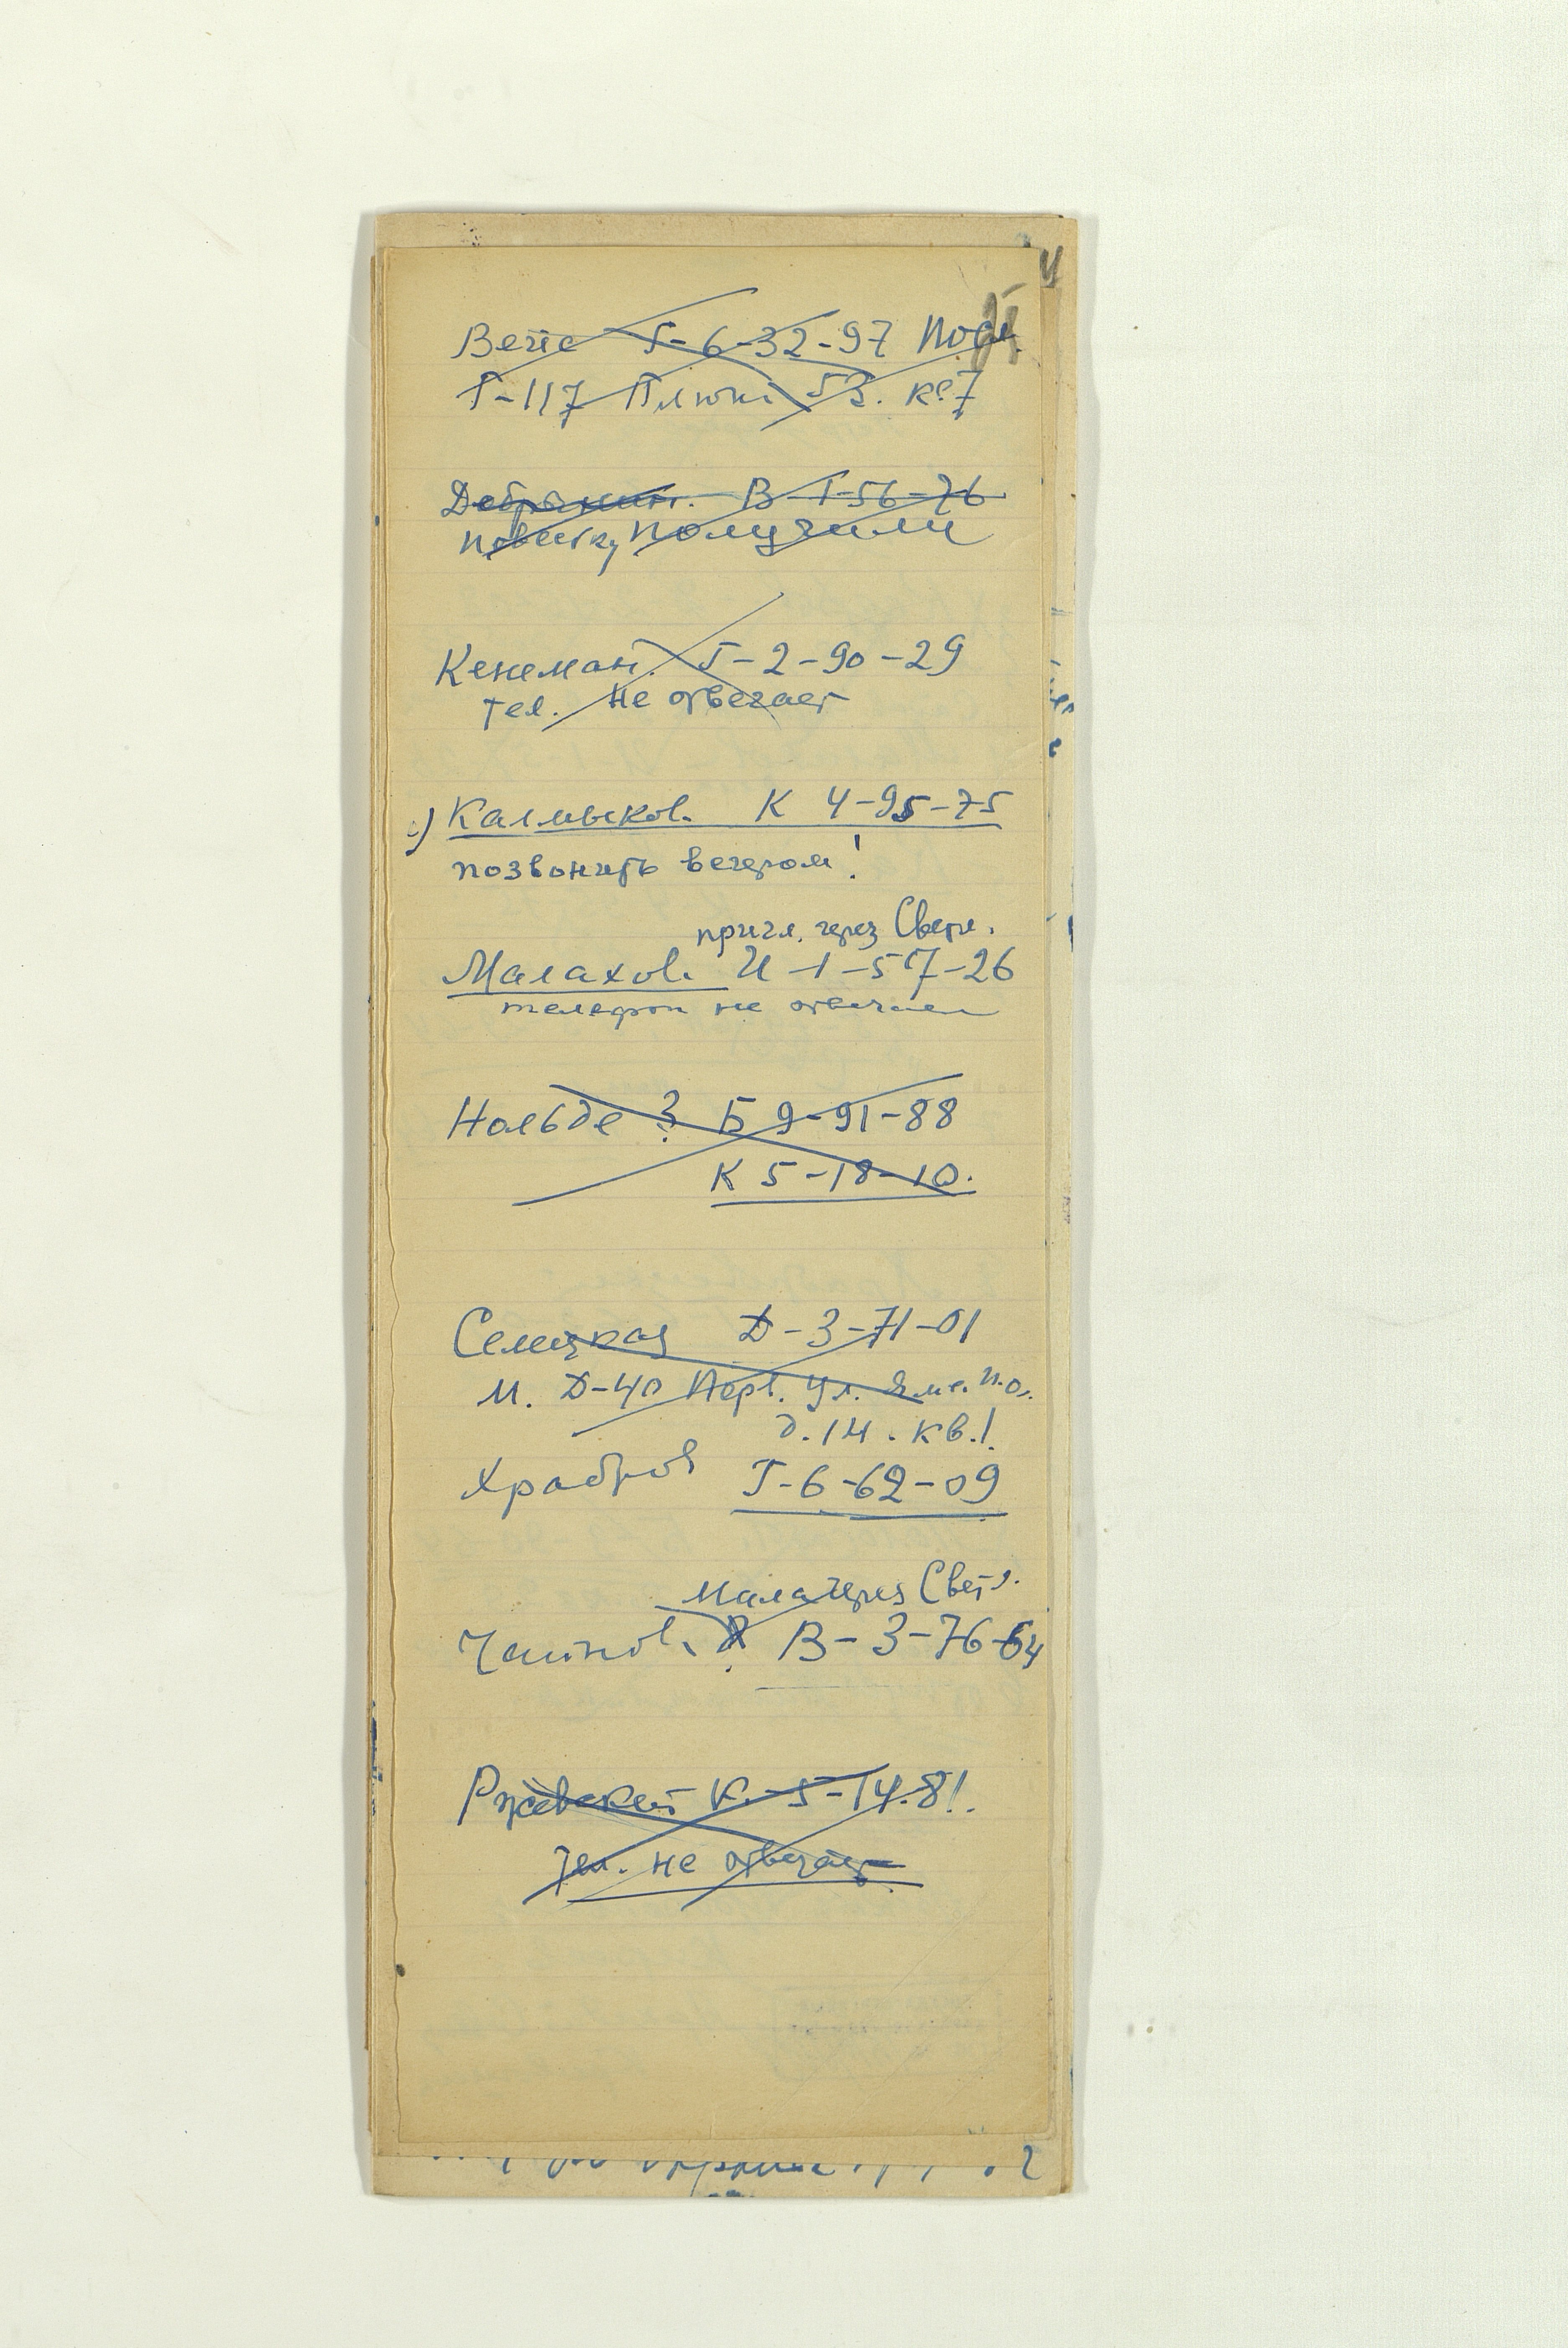 Вейс Г-6-32-97 Посл.
Г-117 Плющ. 53. кв. 7
Добрынин. В-1-56-76
повестку получили
Кенеман. Г-2-90-29
тел. не отвечает
Калмыков. К 4-95-75
позвонить вечером!
пригл. через Светл.
Малахов. И-1-57-26
телефон не отвечает
Нольде ? Б 9-91-88
К 5-18-10.
Семецкая Д-3-71-01
М. Д-40 Перв. ул. Ямс. п.
д. 14. кв. 1.
Храбров Г-6-62-09
через Светл.
? В-3-76-64
Ржевский К-5-14-81.
Тел. не отвечает